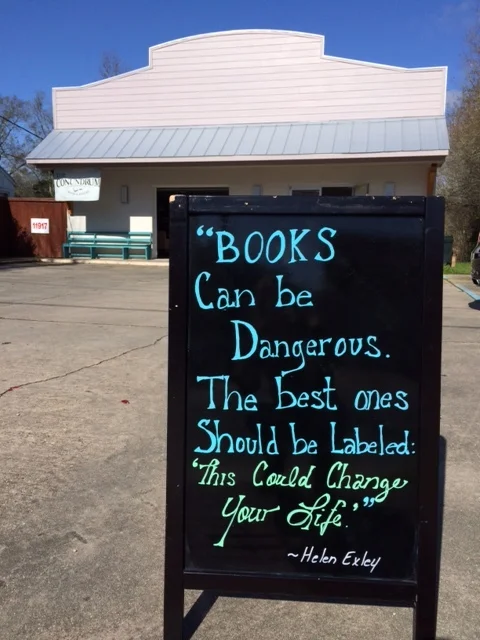 CONUNDRUM
11917
"BOOKS
Can be
Dangerous.
The best ones
Should be Labeled:
'This Could Change
Your Life.'"
~Helen Exley